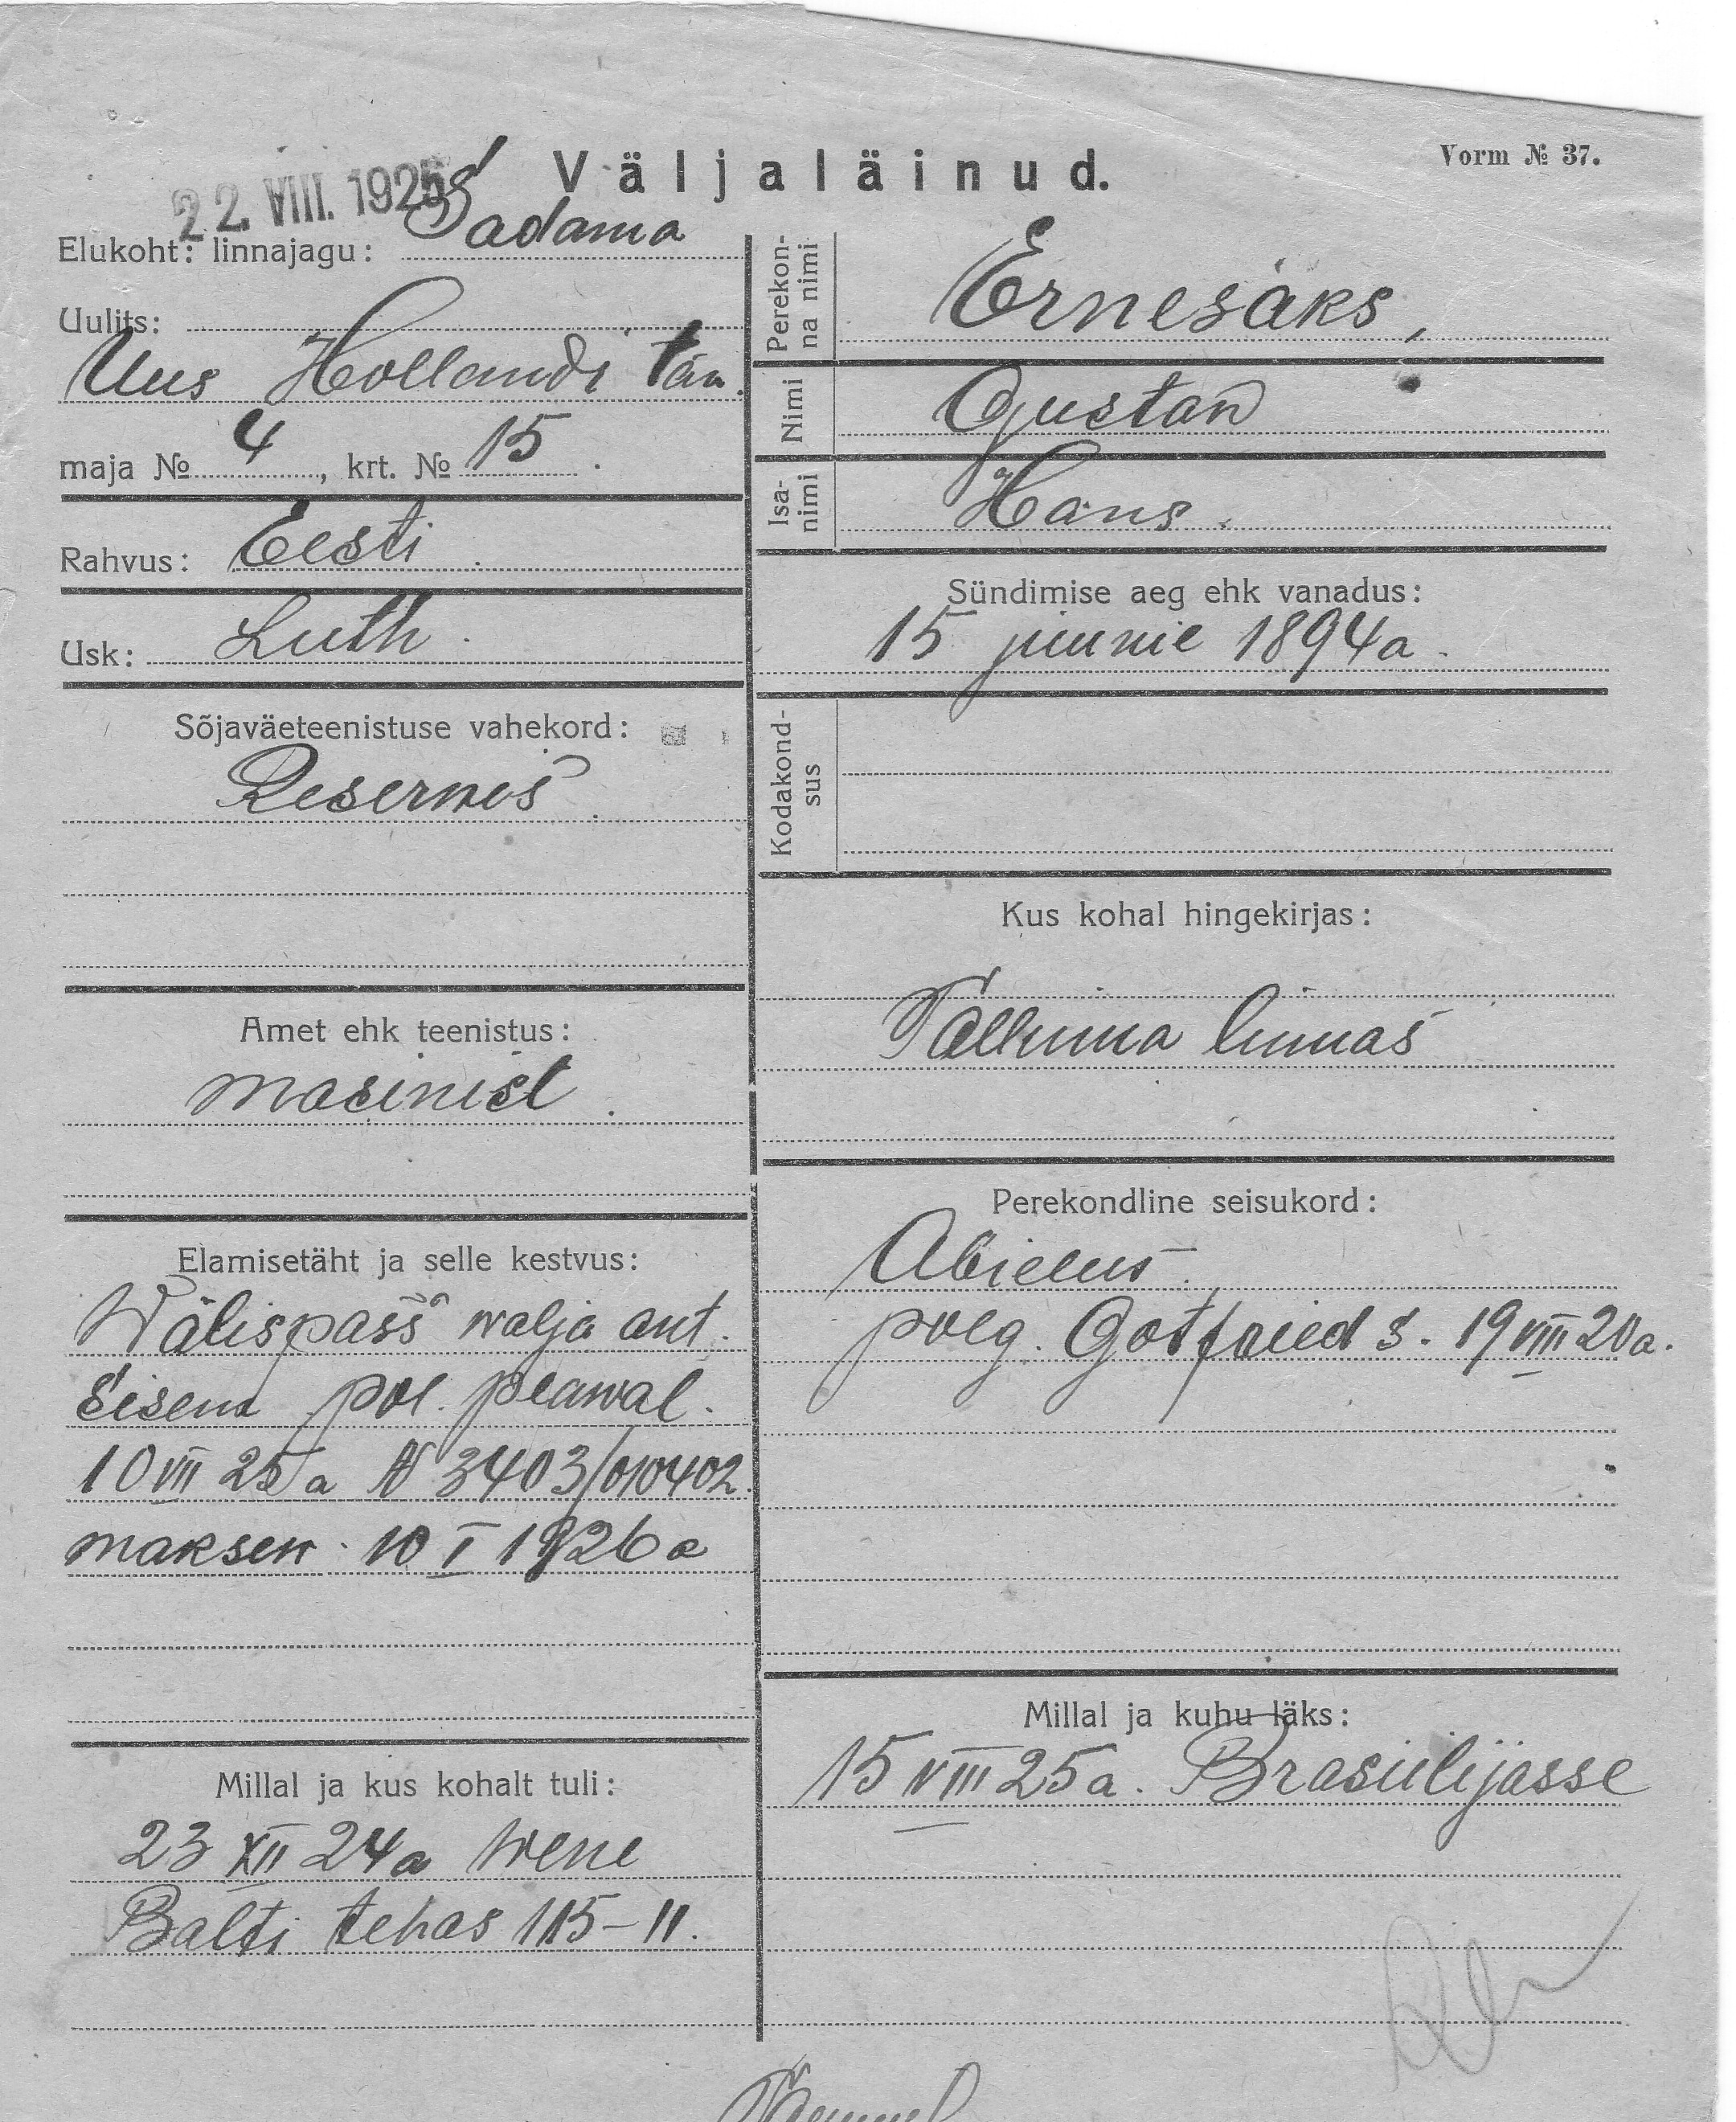 Vorm № 37.
22. VIII. 1925
Väljaläinud.
Elukoht: linnajagu: Sadama
Uulits:
Uus Hollandi tän.
maja № 4, krt. № 15.
Rahvus: Eesti
Usk: Luth.
Sõjaväeteenistuse vahekord:
Reserwis
Amet ehk teenistus:
masinist.
Elamisetäht ja selle kestvus:
Wälispass walja ant.
Sisem pol. peawal.
10 VII 25 a N 3403/010402.
maksew. 10 I 1926 a
Millal ja kus kohalt tuli:
23 XII 24 a Wene
Balti tehas 115–11.
Perekonna nimi
Ernesaks,
Nimi
Gustaw
Isanimi
Hans.
Sündimise aeg ehk vanadus:
15 juunil 1894 a.
Kodakondsus
Kus kohal hingekirjas:
Tallinna linnas
Perekondline seisukord:
Abielus.
poeg. Gotfried s. 19 VIII 20 a.
Millal ja kuhu läks:
15 VIII 25 a. Brasiilijasse